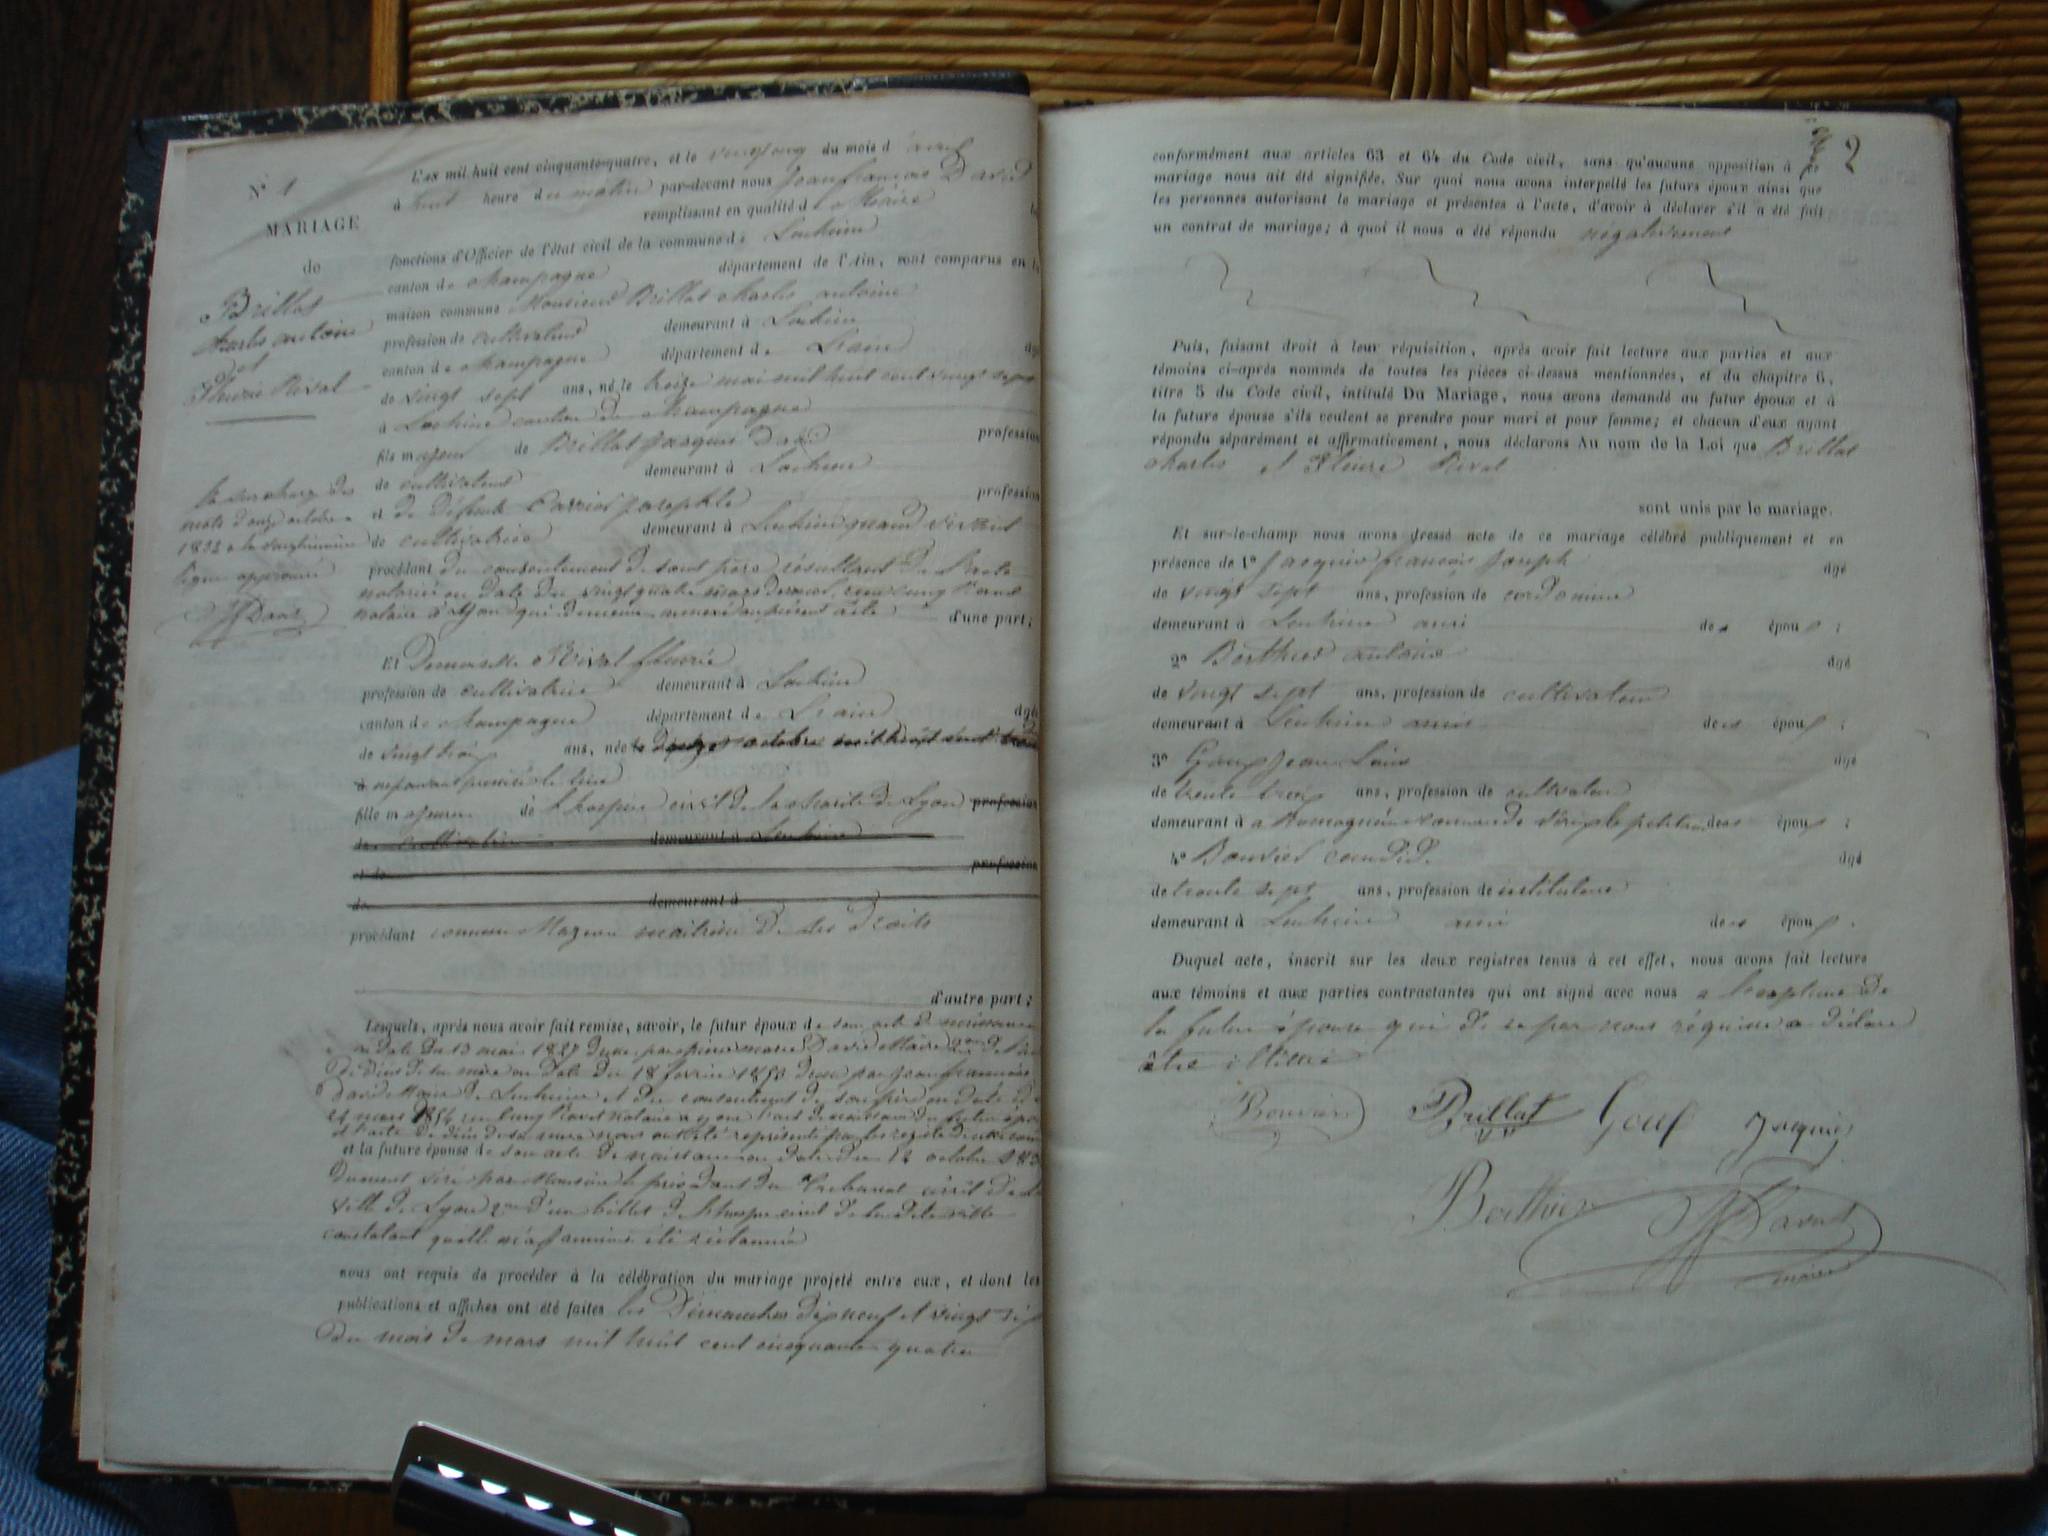 N° 1
MARIAGE
de
Brillat
Charles antoine
et
Fleurie Rival
la surcharge des
mots d'onze octobre
1832 et la vingtunième
ligne approuvée
JF David
L'an mil huit cent cinquante-quatre, et le vingt cinq du mois d avril
à huit heure du matin par-devant nous Jean françois David
remplissant en qualité de Maire les
fonctions d'Officier de l'état civil de la commune de Lochieu
canton de Champagne département de l'Ain, sont comparus en la
maison commune Monsieur Brillat Charles antoine
profession de cultivateur demeurant à Lochieu
canton de Champagne département de L'ain âgé
de vingt sept ans, né le treize mai mil huit cent vingt sept
à Lochieu canton de Champagne
fils majeur de Brillat Jacques David profession
de cultivateur demeurant à Lochieu
et de défunte Carrier Josephte profession
de cultivatrice demeurant à Lochieu quand vivait
procédant du consentement de sont père résultant de l'acte
notariée en date du vingt quatre mars dernier, reçu Cuny Ravet
notaire à qui demeure annexé au présent acte d'une part;
Et Demoiselle Rival fleurie
profession de cultivatrice demeurant à Lochieu
canton de Champagne département de L'ain âgée
de vingt trois ans, née le octobre mil huit cent
à
fille majeure de L'hospice civil de la Charité de Lyon profession
de cultivatrice demeurant à Lochieu
et de profession
de demeurant à
procédant comme Majeure maitresse de ses droits
d'autre part;
Lesquels, après nous avoir fait remise, savoir, le futur époux de son acte de naissance
en date du 13 mai 1827 par pierre marie David Maire 2me de
décès de sa mère en date du 18 fevrier 1853 par Jean francois
David Maire de Lochieu et du consentement de son père en date du
24 mars 1854 reçu Cuny Ravet notaire à L'acte de naissance du futur époux
et l'acte de décès de sa mère nous ont été représenté par les registre de
et la future épouse de son acte de naissance en date du 12 octobre
Dument visé par Monsieur le président du Tribunal civil de la
ville de Lyon 2me d'un billet de l'hospice civil de la dite ville
constatant quelle n'a jammais été réclamée
nous ont requis de procéder à la célébration du mariage projeté entre eux, et dont les
publications et affiches ont été faites les Dimanches dixneuf et vingt six
du mois de mars mil huit cent cinquante quatre
2
conformément aux articles 63 et 64 du Code civil, sans qu'aucune opposition à ce
mariage nous ait été signifiée. Sur quoi nous avons interpellé les futurs époux ainsi que
les personnes autorisant le mariage et présentes à l'acte, d'avoir à déclarer s'il a été fait
un contrat de mariage; à quoi il nous a été répondu négativement
Puis, faisant droit à leur réquisition, après avoir fait lecture aux parties et aux
témoins ci-après nommés de toutes les pièces ci-dessus mentionnées, et du chapitre 6,
titre 5 du Code civil, intitulé Du Mariage, nous avons demandé au futur époux et à
la future épouse s'ils veulent se prendre pour mari et pour femme; et chacun d'eux ayant
répondu séparément et affirmativement, nous déclarons Au nom de la Loi que Brillat
Charles et Fleurie Rival
sont unis par le mariage.
Et sur-le-champ nous avons dressé acte de ce mariage célébré publiquement et en
présence de 1° Jacquier françois Joseph âgé
de vingt sept ans, profession de cordonnier
demeurant à Lochieu ami des époux ;
2° Berthier antoine âgé
de vingt sept ans, profession de cultivateur
demeurant à Lochieu ami des époux ;
3° Jean Louis âgé
de trente trois ans, profession de cultivateur
demeurant à a commune de Virieu le petit ami des époux ;
4° Bouvier candide âgé
de trente sept ans, profession de instituteur
demeurant à Lochieu ami des époux .
Duquel acte, inscrit sur les deux registres tenus à cet effet, nous avons fait lecture
aux témoins et aux parties contractantes qui ont signé avec nous a l'exeption de
la future épouse qui de se par nous réquise a déclaré
être illitéré
Bouvier Brillat Jacquier
Berthier JF David
maire